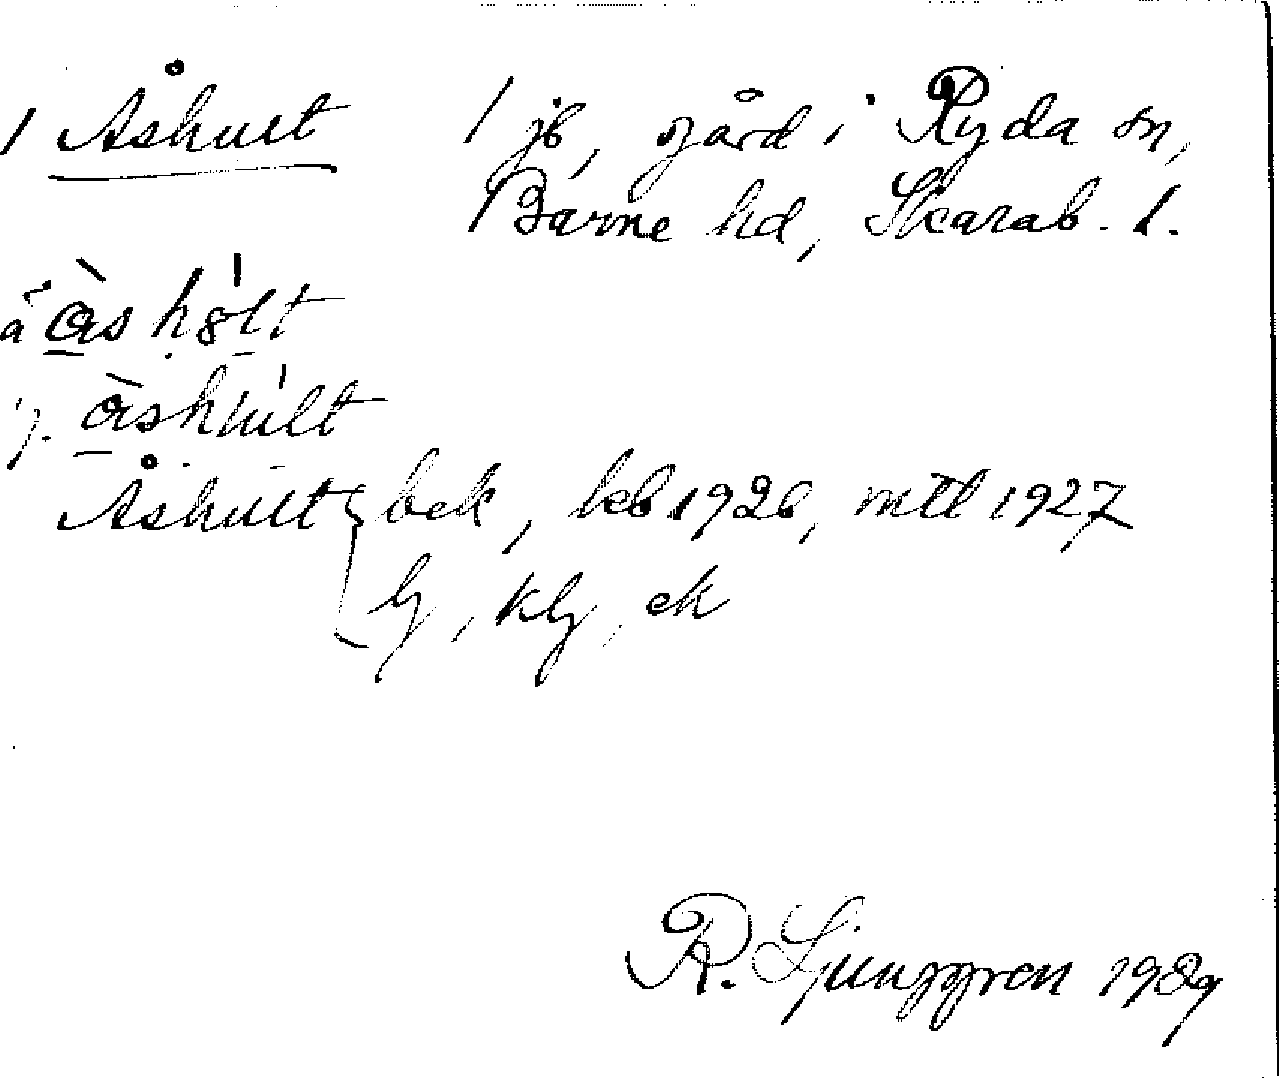 / Åshult / jb, gård i Ryda sn,
Barne hd, Skarab. l.
åshölt
åshult
Åshult { bek, kb 1926, mtl 1927
lj, klj, ek
R. Ljunggren 1929